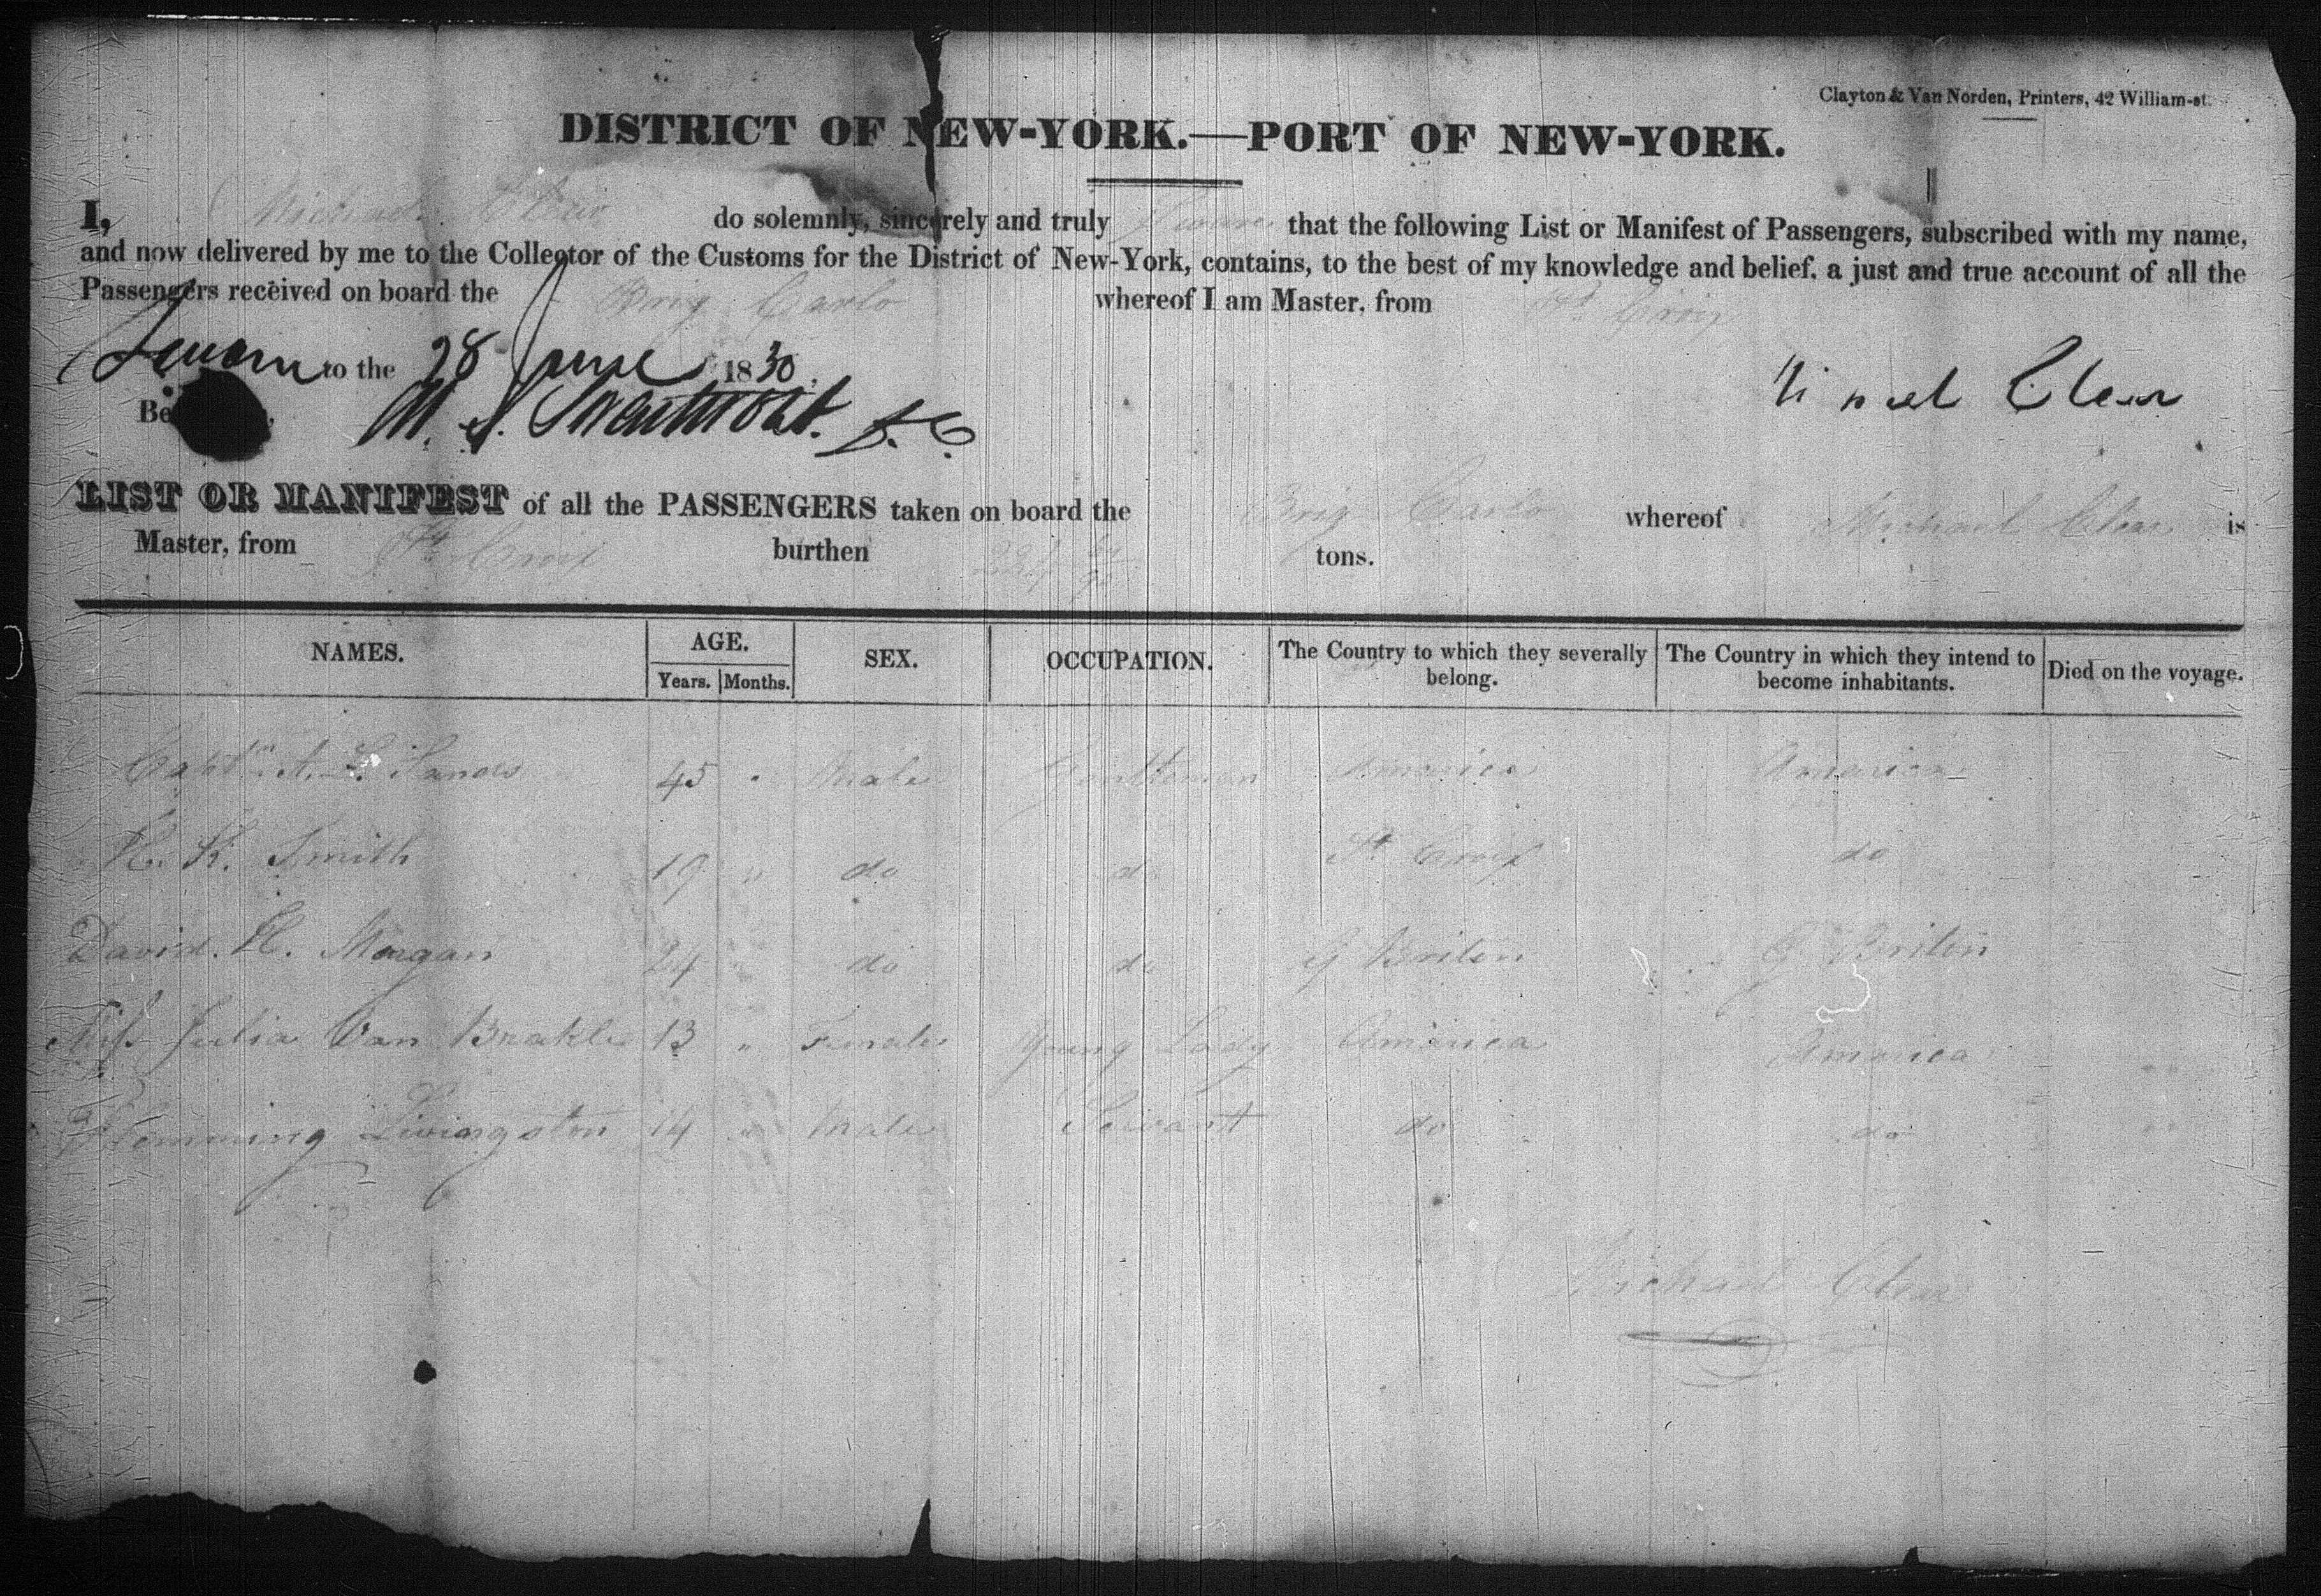 Clayton & Van Norden, Printers, 42 William-st.
DISTRICT OF NEW-YORK.—PORT OF NEW-YORK.
I, Michael Clear do solemnly, sincerely and truly Swear that the following List or Manifest of Passengers, subscribed with my name,
and now delivered by me to the Collector of the Customs for the District of New-York, contains, to the best of my knowledge and belief, a just and true account of all the
Passengers received on board the Brig Carlo whereof I am Master, from St. Croix
Sworn to the 28 June 1830.
Michael Clear
Be
LIST OR MANIFEST of all the PASSENGERS taken on board the Brig Carlo whereof Michael Clear is
Master, from St Croix burthen tons.
NAMES. AGE. SEX. OCCUPATION. The Country to which they severally belong. The Country in which they intend to become inhabitants. Died on the voyage.
Years. Months.
Captn A. L. Sands 45 " Male Gentleman America America
H. K. Smith 19 " do do St Croix do
David. H. Morgan 24 " do do G Briten G Briten
Miss Julia Van Brakle 13 " Female Young Lady America America
Flemming Livingston 14 " Male Servant do do
Michael Clear